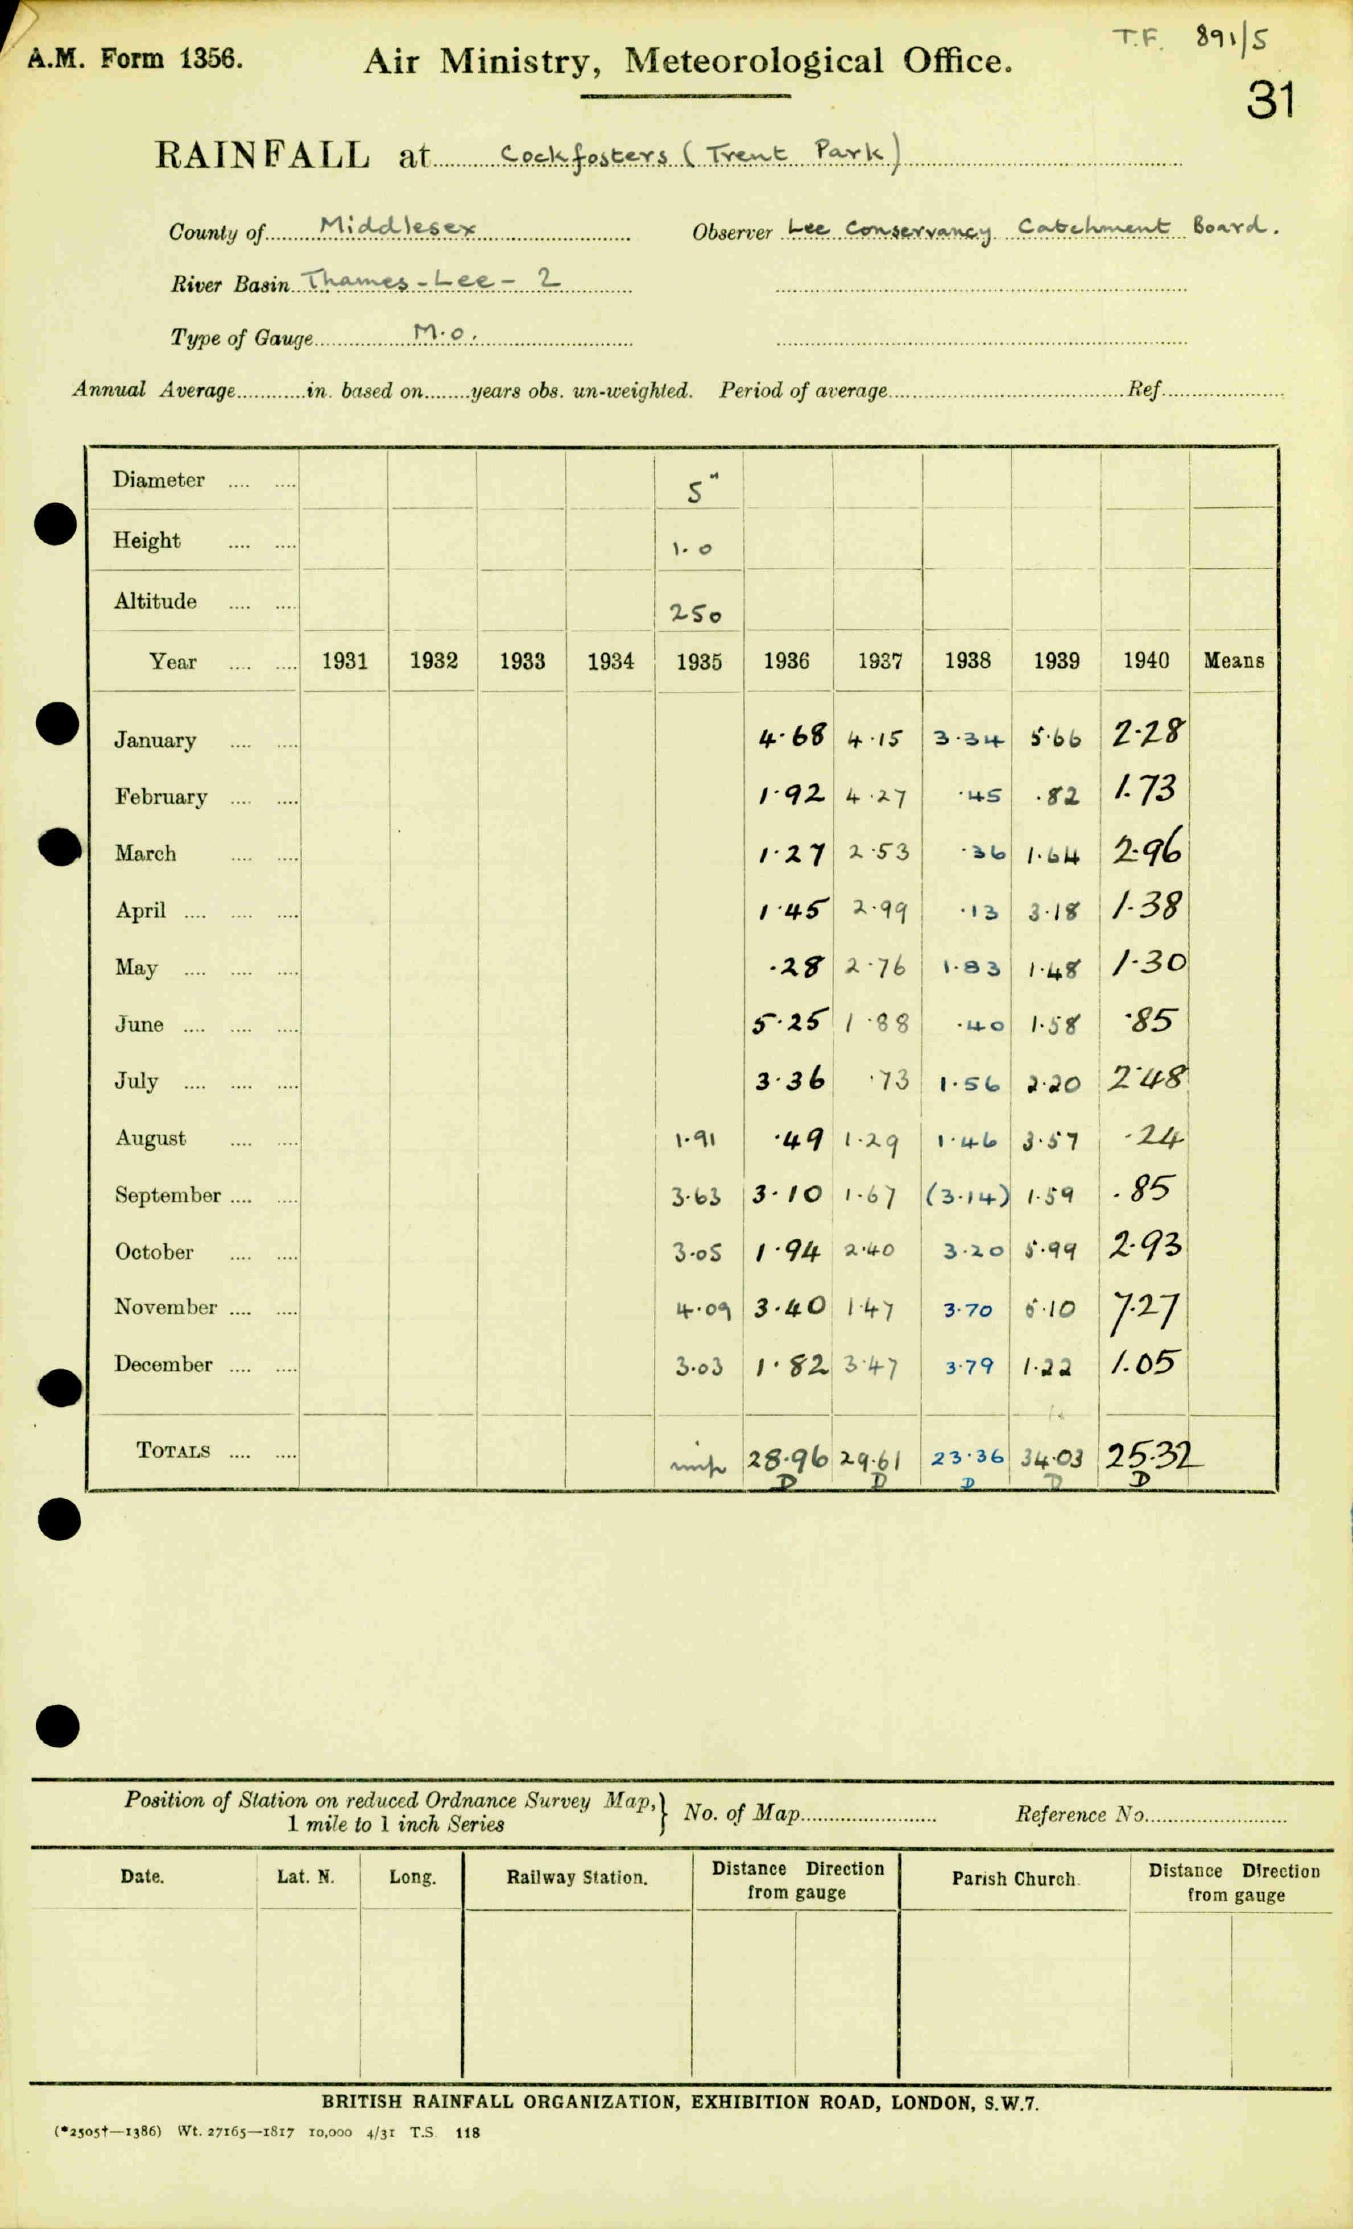 T.F. 891/5
A.M. Form 1356.
Air Ministry, Meteorological Office.
31
RAINFALL at Cockfosters (Trent Park)
County of Middlesex Observer Lee Conservancy Catchment Board.
River Basin Thames-Lee-2
Type of Gauge M.O.
Annual Average in. based on years obs. un-weighted. Period of average Ref.
Diameter 5"
Height 1.0
Altitude 250
Year 1931 1932 1933 1934 1935 1936 1937 1938 1939 1940 Means
January 4.68 4.15 3.34 5.66 2.28
February 1.92 4.27 .45 .82 1.73
March 1.27 2.53 .36 1.64 2.96
April 1.45 2.99 .13 3.18 1.38
May .28 2.76 1.83 1.48 1.30
June 5.25 1.88 .40 1.58 .85
July 3.36 .73 1.56 2.20 2.48
August 1.91 .49 1.29 1.46 3.57 .24
September 3.63 3.10 1.67 (3.14) 1.59 .85
October 3.05 1.94 2.40 3.20 5.99 2.93
November 4.09 3.40 1.47 3.70 5.10 7.27
December 3.03 1.82 3.47 3.79 1.22 1.05
TOTALS 28.96 29.61 23.36 34.03 25.32
D D D D D
Position of Station on reduced Ordnance Survey Map, } No. of Map Reference No.
1 mile to 1 inch Series
Date. Lat. N. Long. Railway Station. Distance Direction from gauge Parish Church. Distance Direction from gauge
BRITISH RAINFALL ORGANIZATION, EXHIBITION ROAD, LONDON, S.W.7.
(*2505†—1386) Wt. 27165—1817 10,000 4/31 T.S. 118